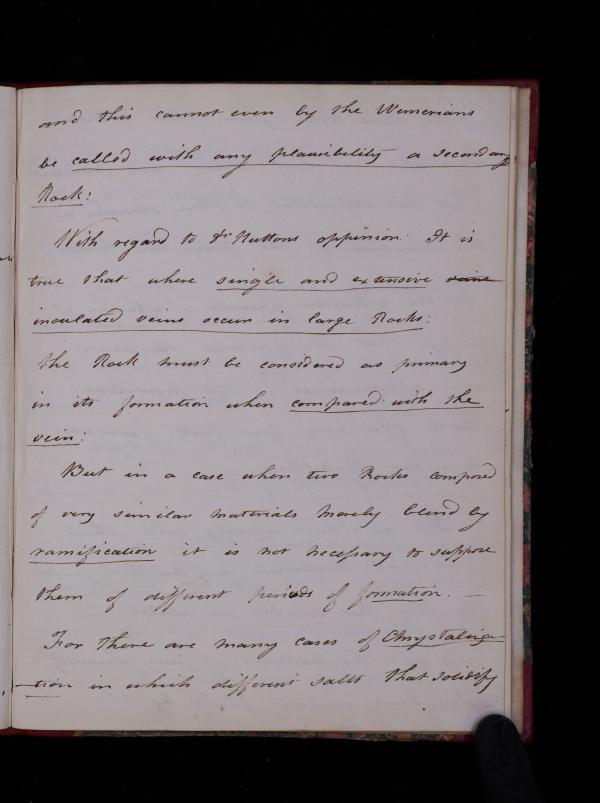 and this cannot even by the Wernerians
be called with any plausibility a secondary
Rock:
With regard to Dr Huttons oppinion. It is
true that where single and extensive veins
insulated veins occur in large Rocks:
the Rock must be considered as primary
in its formation when compared with the
vein:
But in a case when two Rocks composed
of very similar materials merely blend by
ramification it is not necessary to suppose
them of different periods of formation. —
For there are many cases of Chrystaliza-
-tion in which different salts that solidify